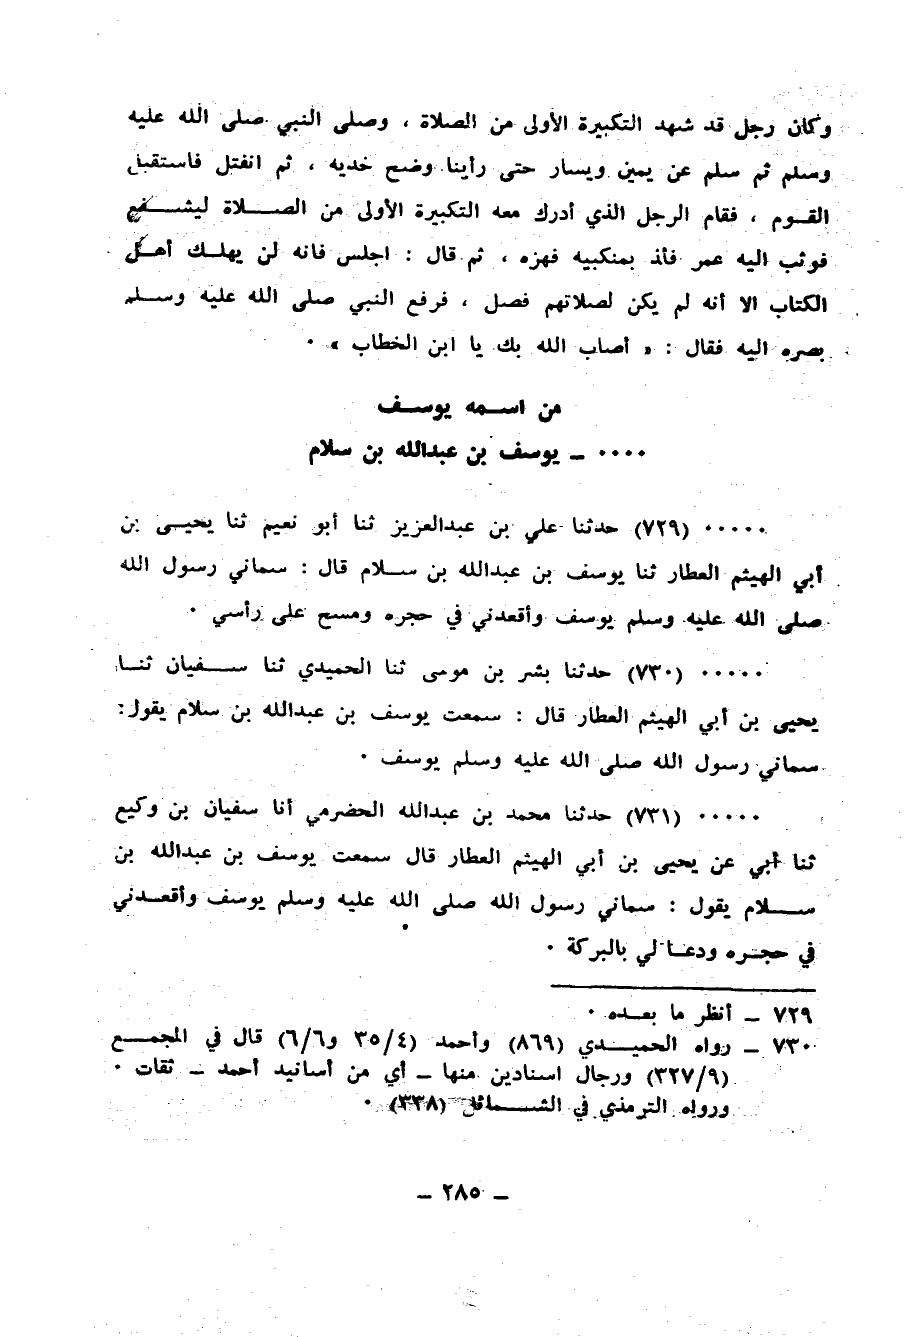 وكان رجل قد شهد التكبيرة الأولى من الصلاة ، وصلى النبي صلى الله عليه
وسلم ثم سلم عن يمين ويسار حتى رأينا وضح خديه ، ثم انفتل فاستقبل
القوم ، فقام الرجل الذي أدرك معه التكبيرة الأولى من الصلاة ليشفع
فوثب اليه عمر فأخذ بمنكبيه فهزه ، ثم قال : اجلس فانه لن يهلك أهل
الكتاب الا أنه لم يكن لصلاتهم فصل ، فرفع النبي صلى الله عليه وسلم
بصره اليه فقال : « أصاب الله بك يا ابن الخطاب » ٠
من اسمه يوسف
٠٠٠٠ ـ يوسف بن عبدالله بن سلام
٠٠٠٠٠ (٧٢٩) حدثنا علي بن عبدالعزيز ثنا أبو نعيم ثنا يحيى بن
أبي الهيثم العطار ثنا يوسف بن عبدالله بن سلام قال : سماني رسول الله
صلى الله عليه وسلم يوسف وأقعدني في حجره ومسح على رأسي ٠
٠٠٠٠٠ (٧٣٠) حدثنا بشر بن موسى ثنا الحميدي ثنا سفيان ثنا
يحيى بن أبي الهيثم العطار قال : سمعت يوسف بن عبدالله بن سلام يقول:
سماني رسول الله صلى الله عليه وسلم يوسف ٠
٠٠٠٠٠ (٧٣١) حدثنا محمد بن عبدالله الحضرمي أنا سفيان بن وكيع
ثنا أبي عن يحيى بن أبي الهيثم العطار قال سمعت يوسف بن عبدالله بن
سلام يقول : سماني رسول الله صلى الله عليه وسلم يوسف وأقعدني
في حجره ودعا لي بالبركة ٠
٧٢٩ ـ أنظر ما بعده ٠
٧٣٠ ـ رواه الحميدي (٨٦٩) وأحمد (٣٥/٤ و٦/٦) قال في المجمع
(٣٢٧/٩) ورجال اسنادين منها ـ أي من أسانيد أحمد ـ ثقات ٠
ورواه الترمذي في الشمائل (٣٣٨) ٠
ـ ٢٨٥ ـ